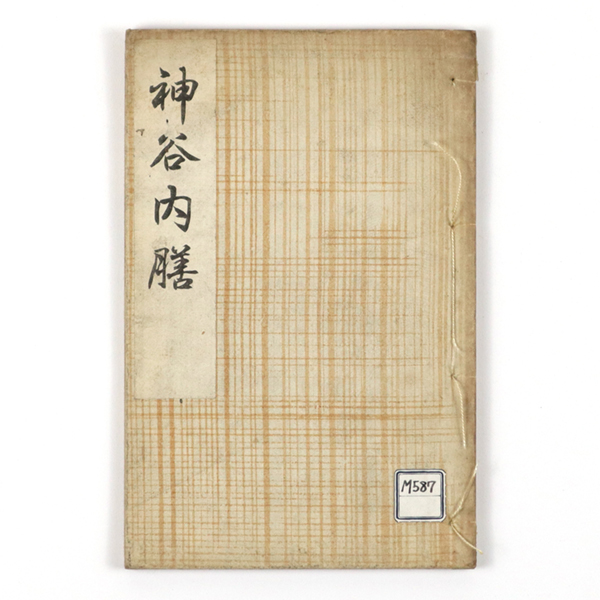 神谷内膳
M587